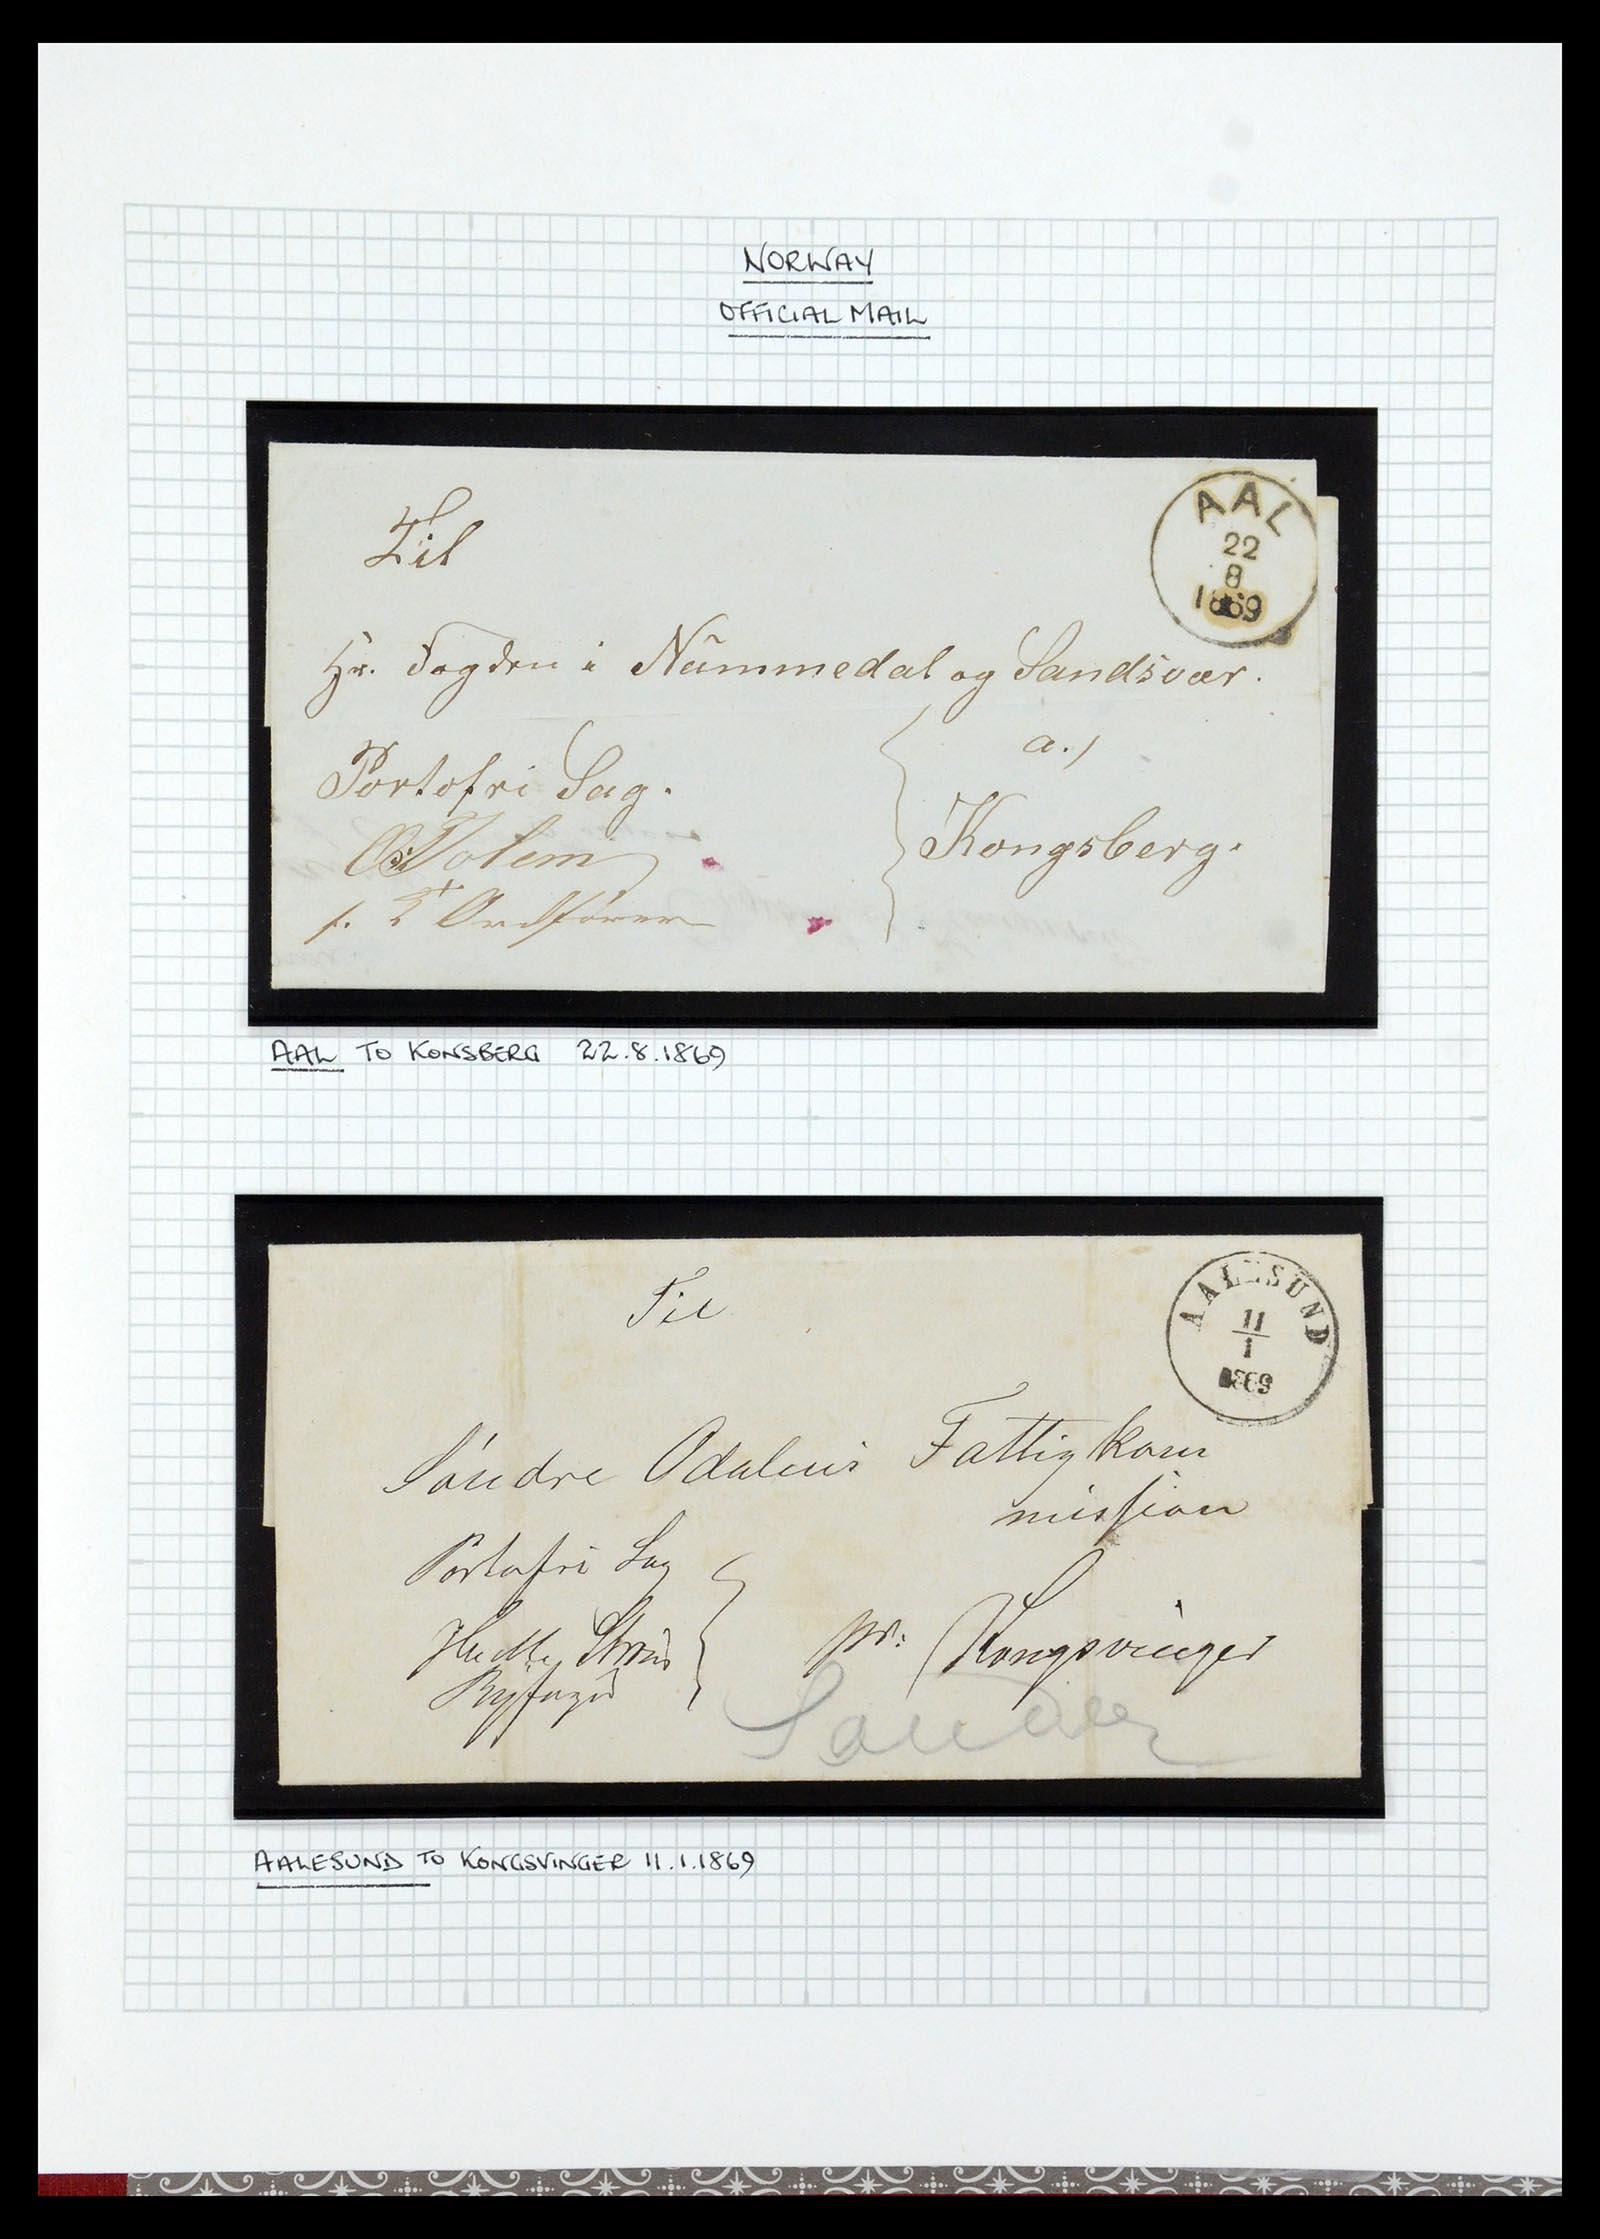 NORWAY
OFFICIAL MAIL
AAL
22
8
1869
Til
Hr. Fogden i Nummedal og Sandsvær.
a./
Portofri Sag.
Kongsberg.
f. T Ordfører
AAL TO KONSBERG 22.8.1869
AALESUND
11
1
1869
Til
Søndre Odalens Fattigkom
mission
Portofri Sag
pr: Kongsvinger
AALESUND TO KONGSVINGER 11.1.1869